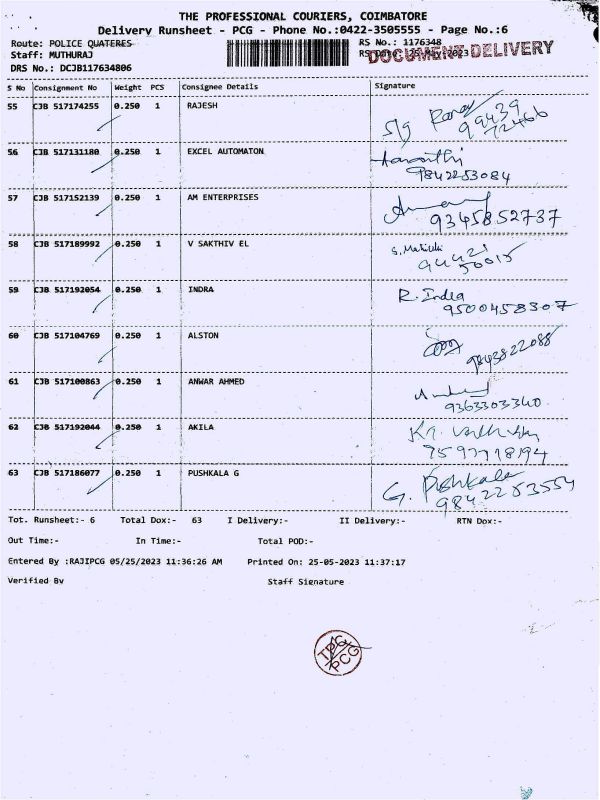 THE PROFESSIONAL COURIERS, COIMBATORE
Delivery Runsheet - PCG - Phone No.:0422-3505555 - Page No.:6
Route: POLICE QUATERES
RS No.: 1176348
Staff: MUTHURAJ
DOCUMENT DELIVERY
DRS No.: DCJB117634806
S No Consignment No Weight PCS Consignee Details Signature
55 CJB 517174255 0.250 1 RAJESH
99439
72466
56 CJB 517131180 0.250 1 EXCEL AUTOMATON
9842253084
57 CJB 517152139 0.250 1 AM ENTERPRISES
9345852737
58 CJB 517189992 0.250 1 V SAKTHIV EL
94421
50015
59 CJB 517192054 0.250 1 INDRA R. Indra
9500458307
60 CJB 517104769 0.250 1 ALSTON
9843822088
61 CJB 517100863 0.250 1 ANWAR AHMED
9363303340
62 CJB 517192044 0.250 1 AKILA
63 CJB 517186077 0.250 1 PUSHKALA G G. Pushkala
9842253554
Tot. Runsheet:- 6 Total Dox:- 63 I Delivery:- II Delivery:- RTN Dox:-
Out Time:- In Time:- Total POD:-
Entered By :RAJIPCG 05/25/2023 11:36:26 AM Printed On: 25-05-2023 11:37:17
Verified By Staff Signature
TPC
PCG